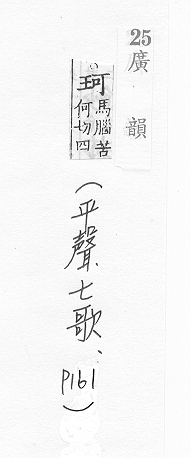 25
廣韻
珂馬腦苦何切四
(平聲七歌、P161)